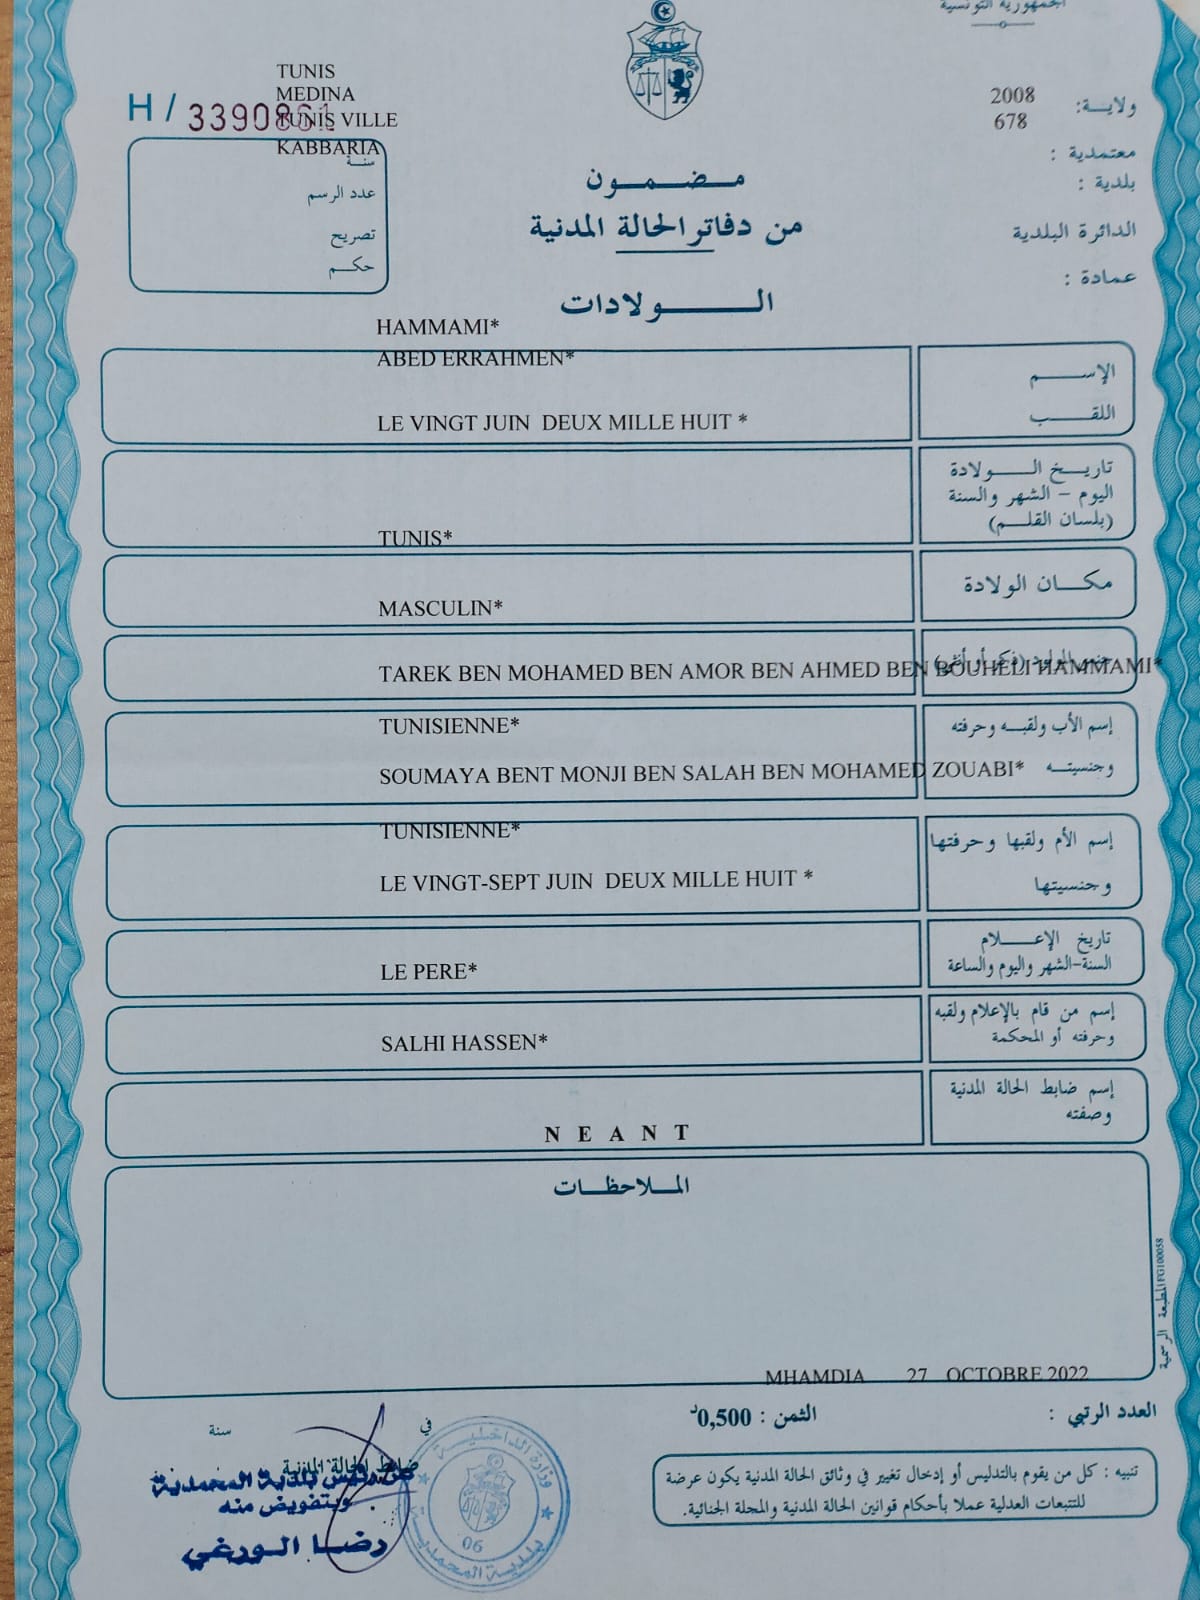 الجمهورية التونسية
TUNIS
MEDINA
TUNIS VILLE
KABBARIA
H / 3390861
2008
678
ولايـة:
معتمدية :
بلدية :
الدائرة البلدية
عمادة :
سنـة
عدد الرسم
تصريح
حكـم
مـضـمـون
من دفاتر الحالة المدنية
الـولادات
HAMMAMI*
ABED ERRAHMEN*
الإسـم
اللقـب
LE VINGT JUIN DEUX MILLE HUIT *
تاريـخ الـولادة
اليوم - الشهر والسنة
(بلسان القلـم)
TUNIS*
مكـان الولادة
MASCULIN*
جنس المولود (ذكر أو أنثى)
TAREK BEN MOHAMED BEN AMOR BEN AHMED BEN BOUHELI HAMMAMI*
TUNISIENNE*
إسم الأب ولقبـه وحرفته
وجنسيتـه
SOUMAYA BENT MONJI BEN SALAH BEN MOHAMED ZOUABI*
TUNISIENNE*
إسم الأم ولقبها وحرفتها
وجنسيتها
LE VINGT-SEPT JUIN DEUX MILLE HUIT *
تاريخ الإعـلام
السنة-الشهر واليوم والساعة
LE PERE*
إسم من قام بالإعلام ولقبه
وحرفته أو المحكمة
SALHI HASSEN*
إسم ضابط الحالة المدنية
وصفته
N E A N T
الملاحظـات
المطبعة الرسمية FG100058
MHAMDIA 27 OCTOBRE 2022
العدد الرتبي :
الثمن : 0,500د
في
سنة
ضابط الحالة المدنية
عن رئيس بلدية المحمدية
وبتفويض منه
رضا الورغي
وزارة الداخلية
06
بلدية المحمدية
تنبيه : كل من يقوم بالتدليس أو إدخال تغيير في وثائق الحالة المدنية يكون عرضة
للتتبعات العدلية عملا بأحكام قوانين الحالة المدنية والمجلة الجنائية.